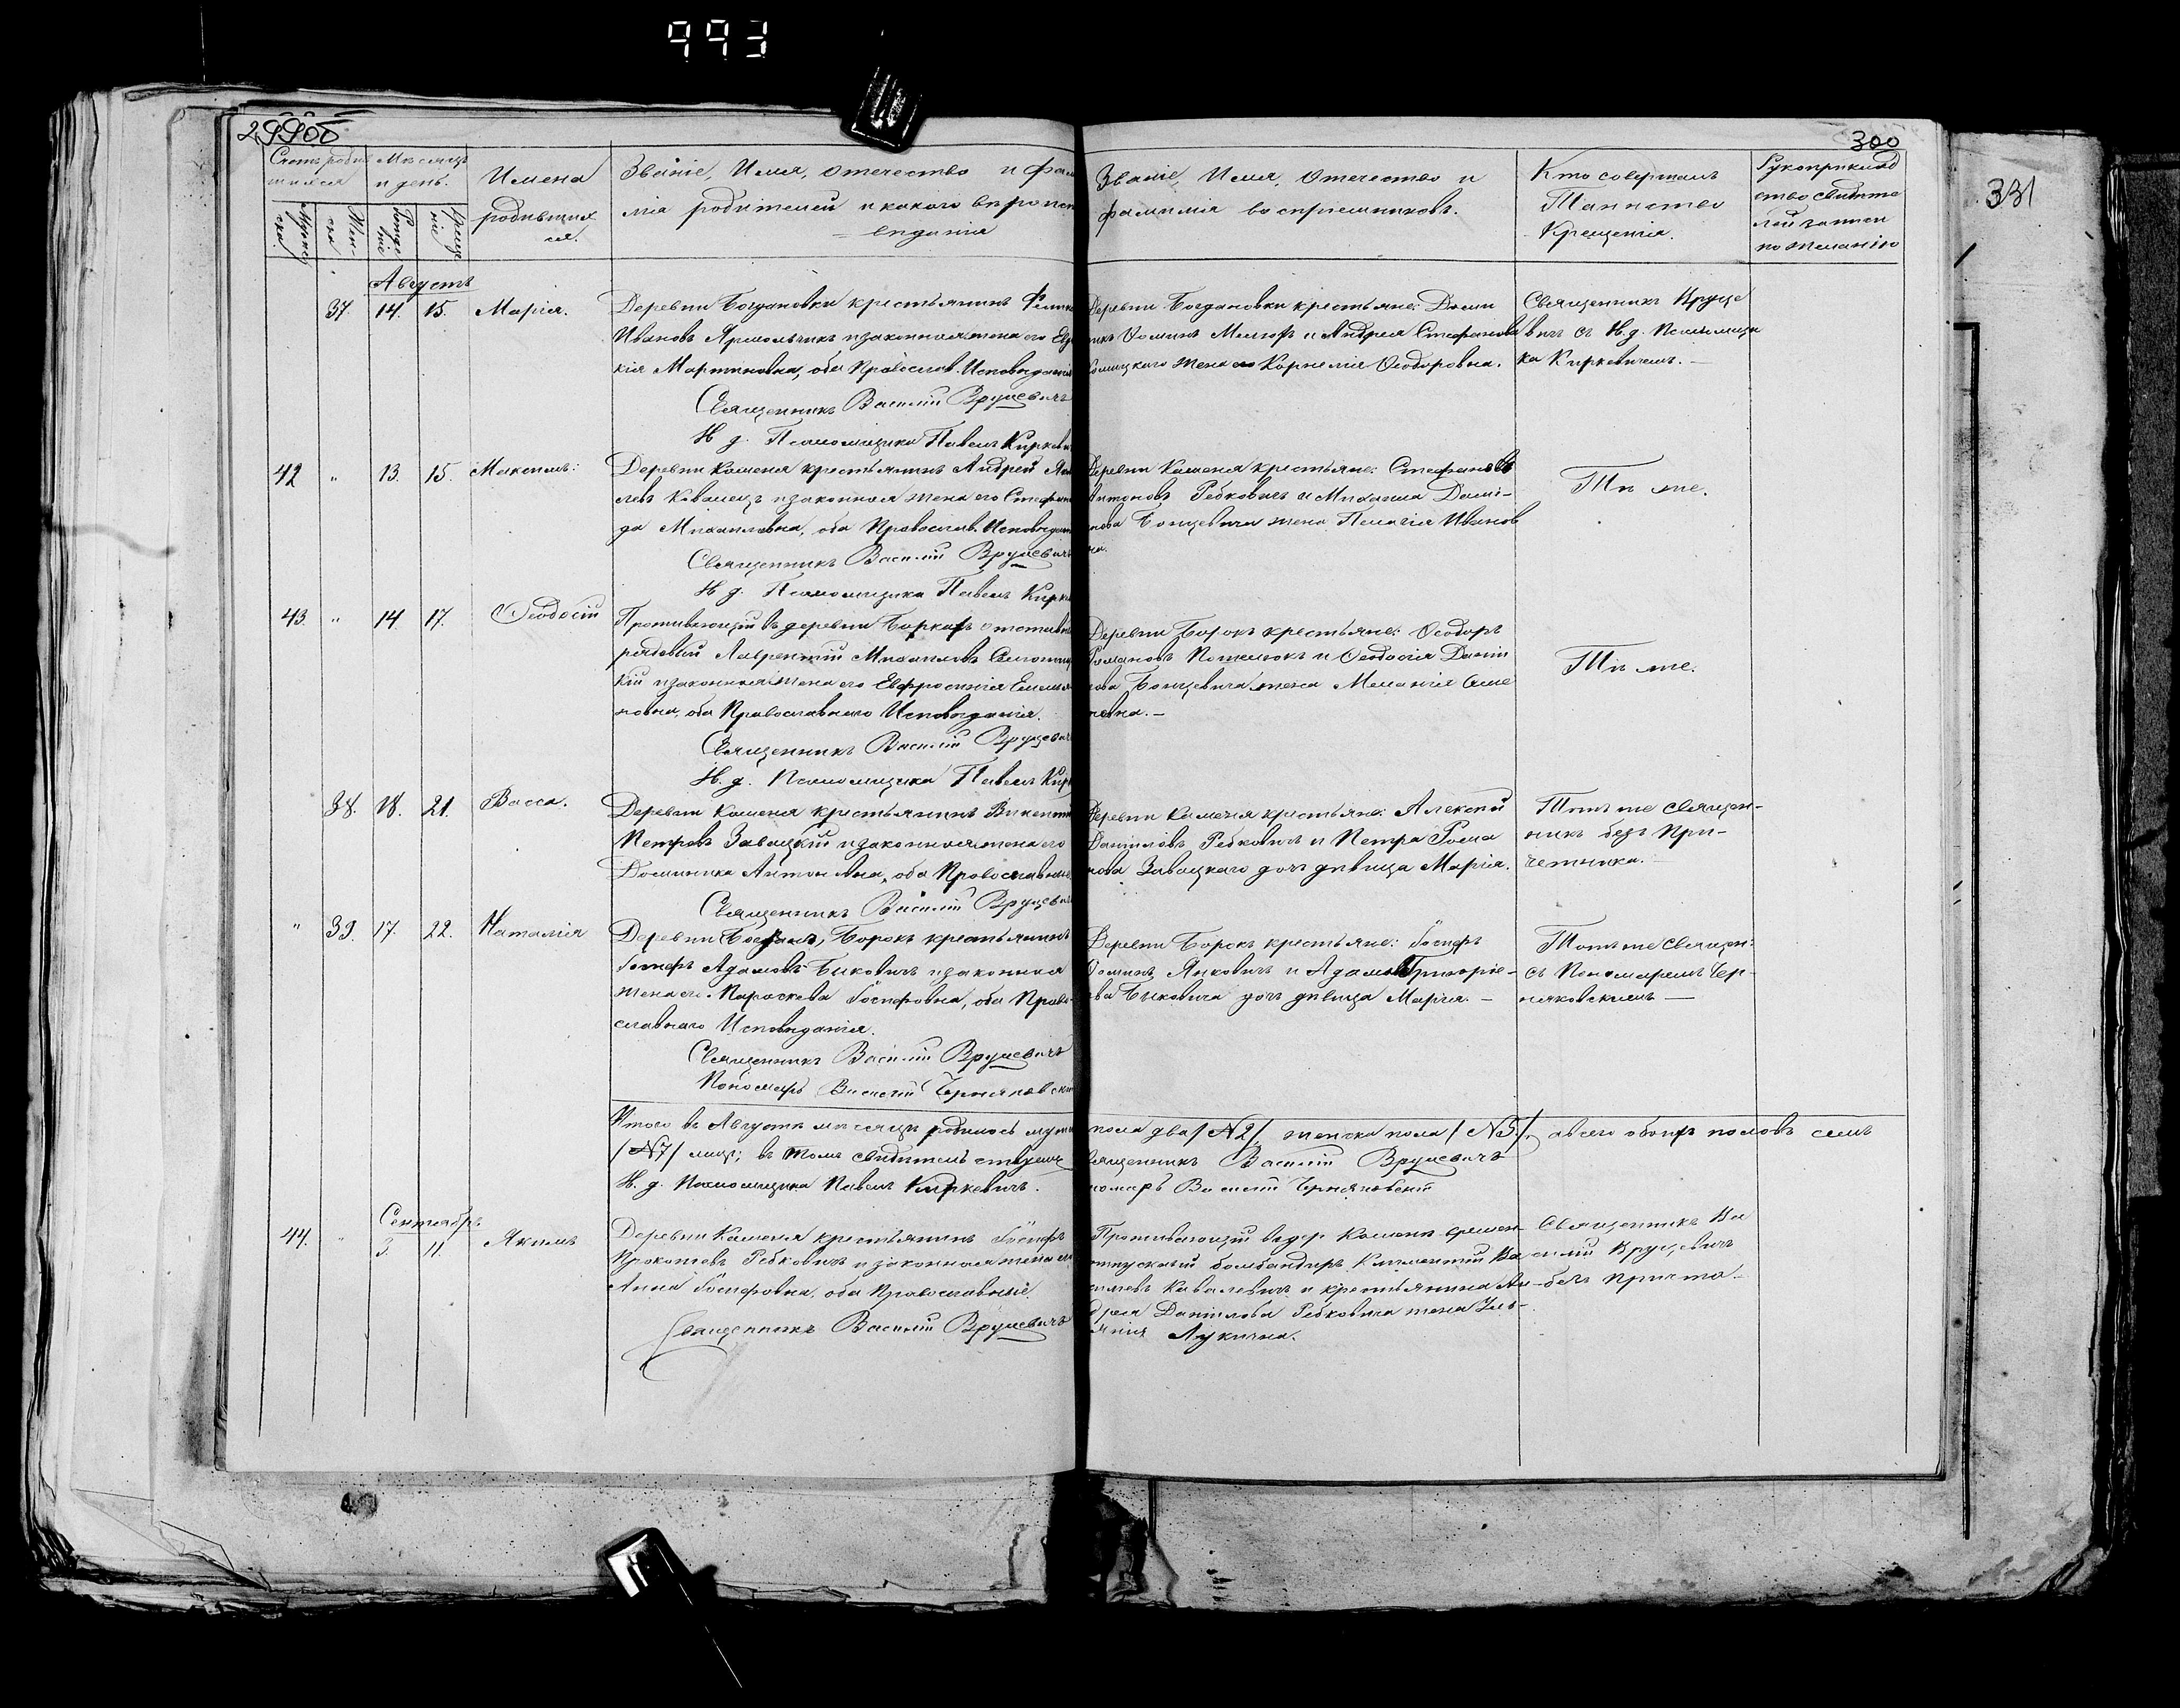 993
299об
300
331
Счетъ родив
шихся
Мѣсяцъ
и день.
Имена
родивших
ся.
Званіе, Имя, отечество и фам
лія родителей и какого вѣроисп
веданія
Званіе, Имя, Отечество и
фамилія воспріемниковъ.
Кто совершалъ
Таинство
Крещенія.
Рукоприклад
ство свидѣте
лей записи
по желанію
Мужес
ка.
Жен-
ска
Рожде
ніе
Креще
ніе
Августъ
37. 14. 15. Марія.
Деревни Богдановки крестьянинъ
Ивановъ Ярмольчикъ и законная жена его Евд
кія Мартиновна, оба Православ. Исповѣданія
Священникъ Василій Вруцевичъ
И. д. Псаломщика Павелъ Киркеви
Деревни Богдановки крестьяне: Доми
никъ Ѳоминъ и Андрея Стефанова
жена его Корнелія Ѳеодоровна.
Священникъ Вруце
вичъ съ И. д. Псаломщи
ка Киркевичемъ. —
42 " 13. 15. Максимъ:
Деревни Каменя крестьянинъ Андрей
левъ Ковалецъ и законная жена его Стефани
да Михаиловна, оба Православ. Исповѣдан
Священникъ Василій Вруцевичъ
И. д. Псаломщика Павелъ Кирк
Деревни Каменя крестьяне: Стефанъ
Антоновъ Ребковичъ и Михаила Дани-
лова Бонцевича жена Пелагія Иванов
на.
Тѣ же.
43. " 14. 17. Ѳеодосій
Проживающій въ деревни Боркахъ отставн
рядовый Лаврентій Михаиловъ
кій и законная жена его Евфросинія Емелья
новна, оба Православнаго Исповѣданія.
Священникъ Василій Вруцевич
И. д. Псаломщика Павелъ Кирк
Деревни Борокъ крестьяне: Ѳеодоръ
Романовъ и Ѳеодосія Данін
лова Бонцевича жена Меланія Симе
новна. —
Тѣ же.
38. 18. 21. Васса.
Деревни Каменя крестьянинъ Викентій
Петровъ Завацкій и законная жена его
Доминика Антоновна, оба Православные
Священникъ Василій Вруцевич
Деревни Каменя крестьяне: Алексѣй
Даніиловъ Ребковичъ и Петра Рома
нова Завацкаго дочь дѣвица Марія.
Тотъ же Священ-
никъ безъ При-
четника.
" 39. 17. 22. Наталія
Деревни Борокъ крестьянинъ
Іосифъ Адамовъ Быковичъ и законная
жена его Параскева Іосифовна, оба Право-
славнаго Исповѣданія.
Священникъ Василій Вруцевичъ
Пономарь Василій Черняковскій
Деревни Борокъ крестьяне: Іосифъ
Ѳоминъ Янковичъ и Адама Григорье-
ва Быковича дочь дѣвица Марія. —
Тотъ же Священ:
съ Пономаремъ Чер-
няковскимъ —
Итого въ Августѣ мѣсяцѣ родилось муж
пола два /№2/, женска пола /№5/, а всего обоихъ половъ семь
/№7/ лицъ; въ томъ свидѣтельствуемъ
Священникъ Василій Вруцевичъ
И. д. Псаломщика Павелъ Киркевичъ.
номарь Василій Черняковскій
Сентябрь
44. " 3. 11. Якимъ
Деревни Каменя крестьянинъ Іосифъ
Прокопіевъ Ребковичъ и законная жена его
Анна Іосифовна, оба Православные.
Священникъ Василій Вруцевичъ
Проживающій въ дер. Камени времен-
отпускный бомбандиръ Климентій Ва
сильевъ Кавалевичъ и крестьянина Ан-
дрея Даніилова Ребковича жена Уль-
янія Лукична.
Священникъ Ва
силій Вруцевичъ
безъ причта.